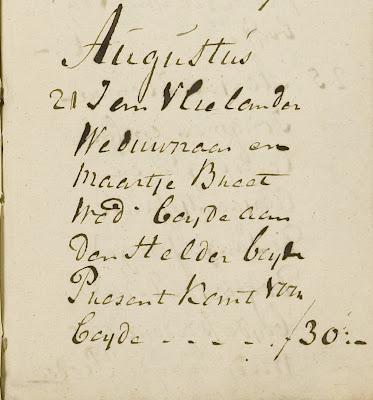 Augustus
21 Jem Vlielander
Weduwnaar en
Maartje Breet
Wed: beyde aan
Den Helder beyde
Present komt voor
beyde - - - - - f 30:-